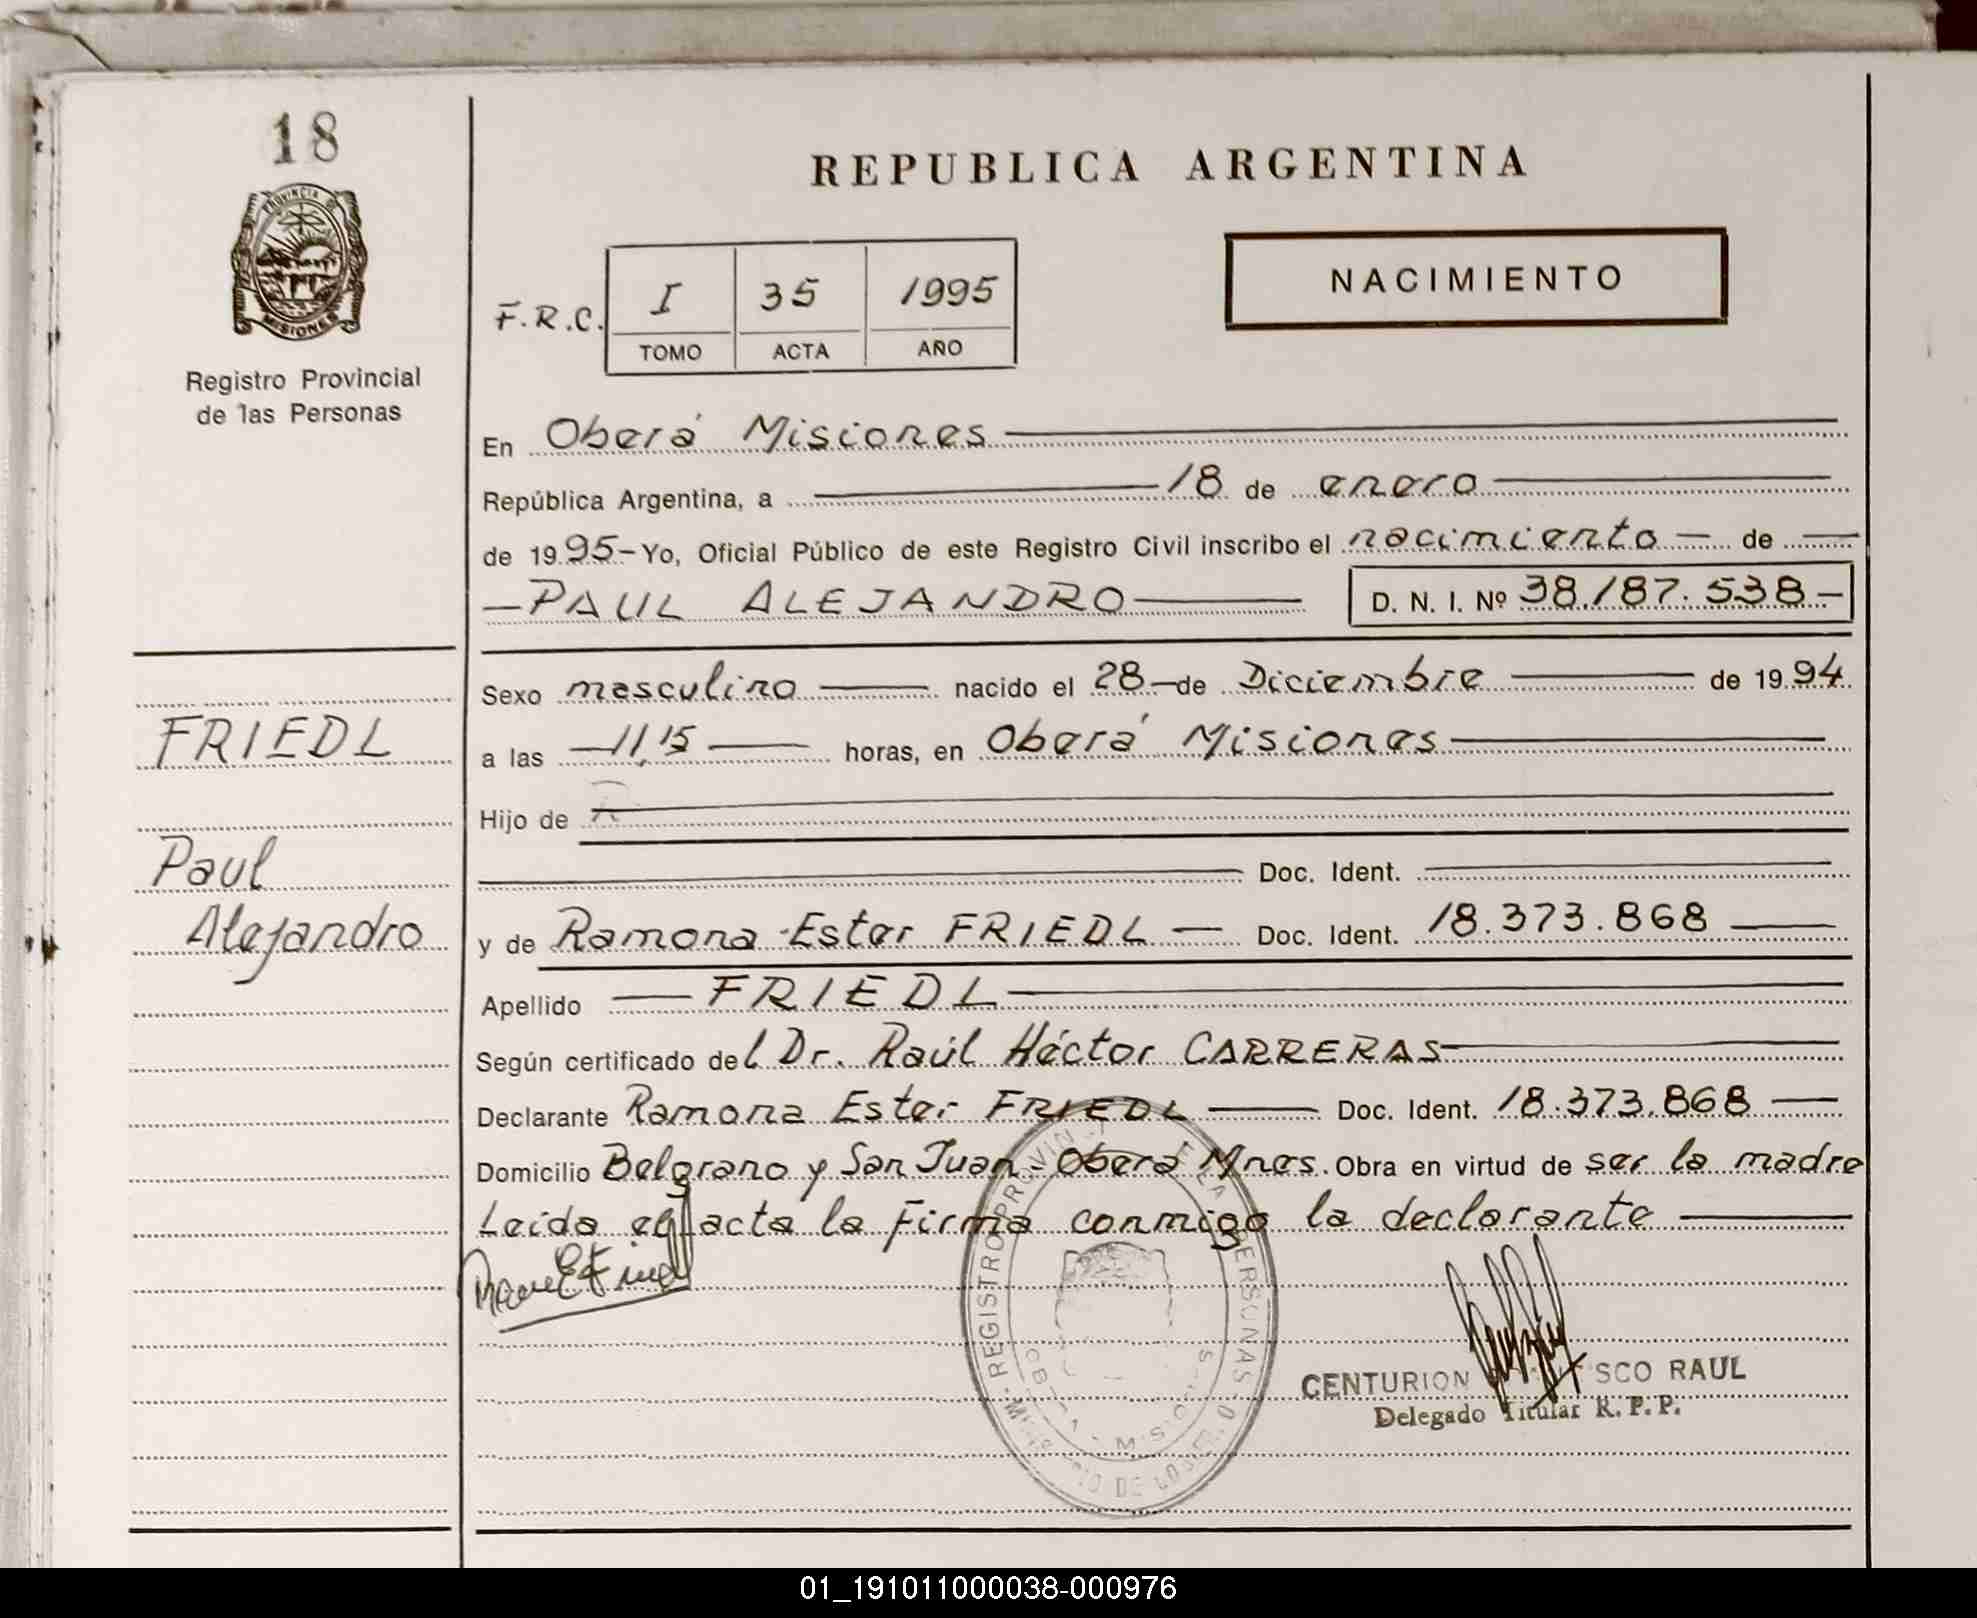 18
PROVINCIA DE
MISIONES
Registro Provincial
de las Personas
REPUBLICA ARGENTINA
NACIMIENTO
F.R.C. I 35 1995
TOMO ACTA AÑO
En Oberá Misiones
República Argentina, a 18 de enero
de 1995- Yo, Oficial Público de este Registro Civil inscribo el nacimiento de
PAUL ALEJANDRO D. N. I. Nº 38.187.538-
FRIEDL
Paul
Alejandro
Sexo masculino nacido el 28 de Diciembre de 1994
a las 11,15 horas, en Oberá Misiones
Hijo de
Doc. Ident.
y de Ramona Ester FRIEDL Doc. Ident. 18.373.868
Apellido FRIEDL
Según certificado del Dr. Raúl Héctor CARRERAS
Declarante Ramona Ester FRIEDL Doc. Ident. 18.373.868
Domicilio Belgrano y San Juan - Oberá Mnes. Obra en virtud de ser la madre
Leida el acta la firma conmigo la declarante
CENTURION SCO RAUL
Delegado Titular R. P. P.
01_191011000038-000976